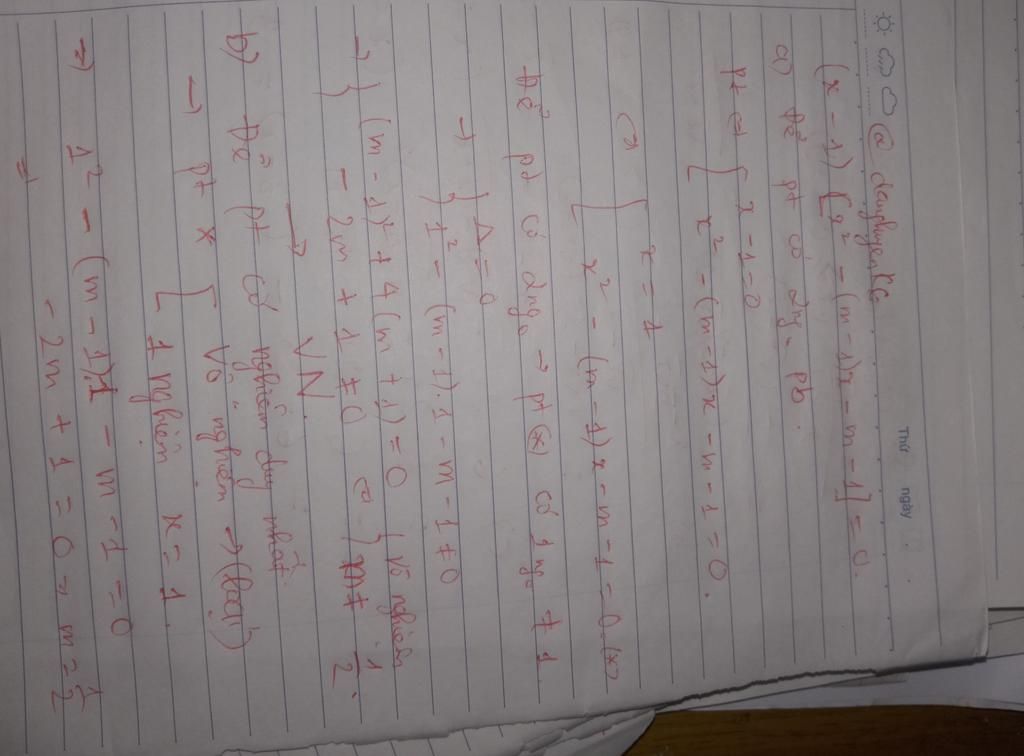 Thứ ngày
@ danghuyenKG
(x - 1) [x² - (m - 1)x - m - 1] = 0.
a) Để pt có 2ng₀ pb.
pt ⇔ [ x - 1 = 0
x² - (m - 1)x - m - 1 = 0.
⇔ [ x = 1
x² - (m - 1)x - m - 1 = 0. (*)
Để pt có 2ng₀ → pt(*) có 1 ng₀ ≠ 1
→ { Δ = 0
1² - (m - 1).1 - m - 1 ≠ 0
→ { (m - 1)² + 4(m + 1) = 0 { Vô nghiệm
- 2m + 1 ≠ 0 ⇔ m ≠ 1/2.
→ VN.
b) Để pt có nghiệm duy nhất
→ pt * [ Vô nghiệm → (loại)
1 nghiệm x = 1.
→ 1² - (m - 1).1 - m - 1 = 0
= - 2m + 1 = 0 → m = 1/2